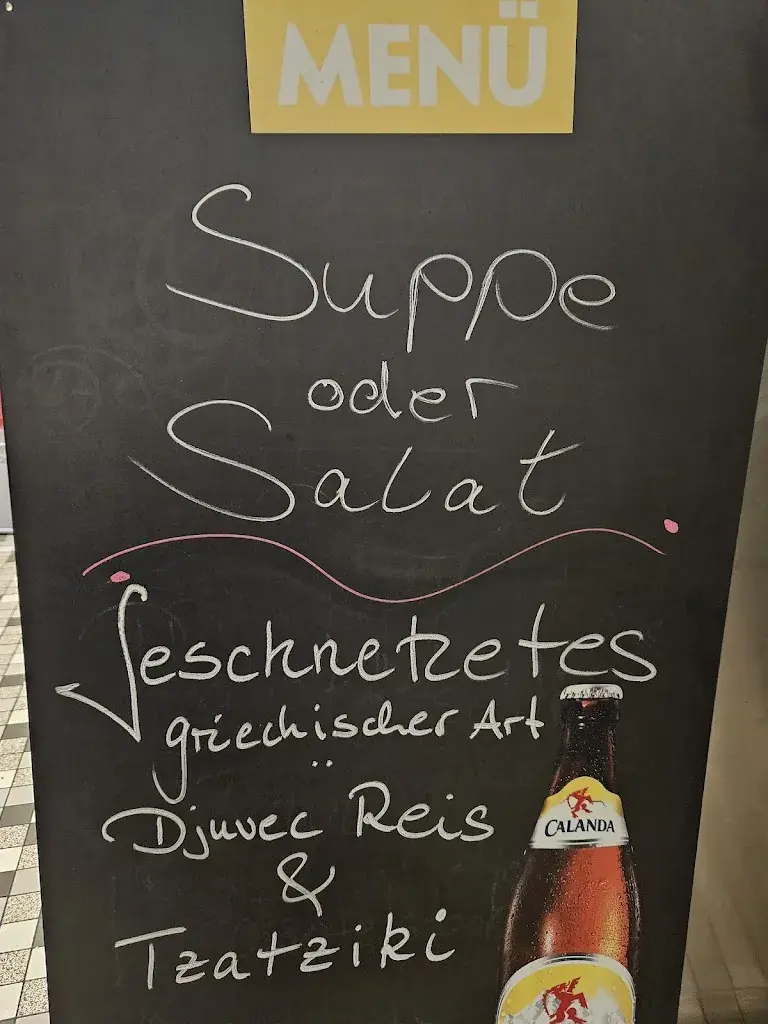 MENÜ
Suppe
oder
Salat
Geschnetzeltes
griechischer Art
Djuvec Reis
&
Tzatziki
CALANDA